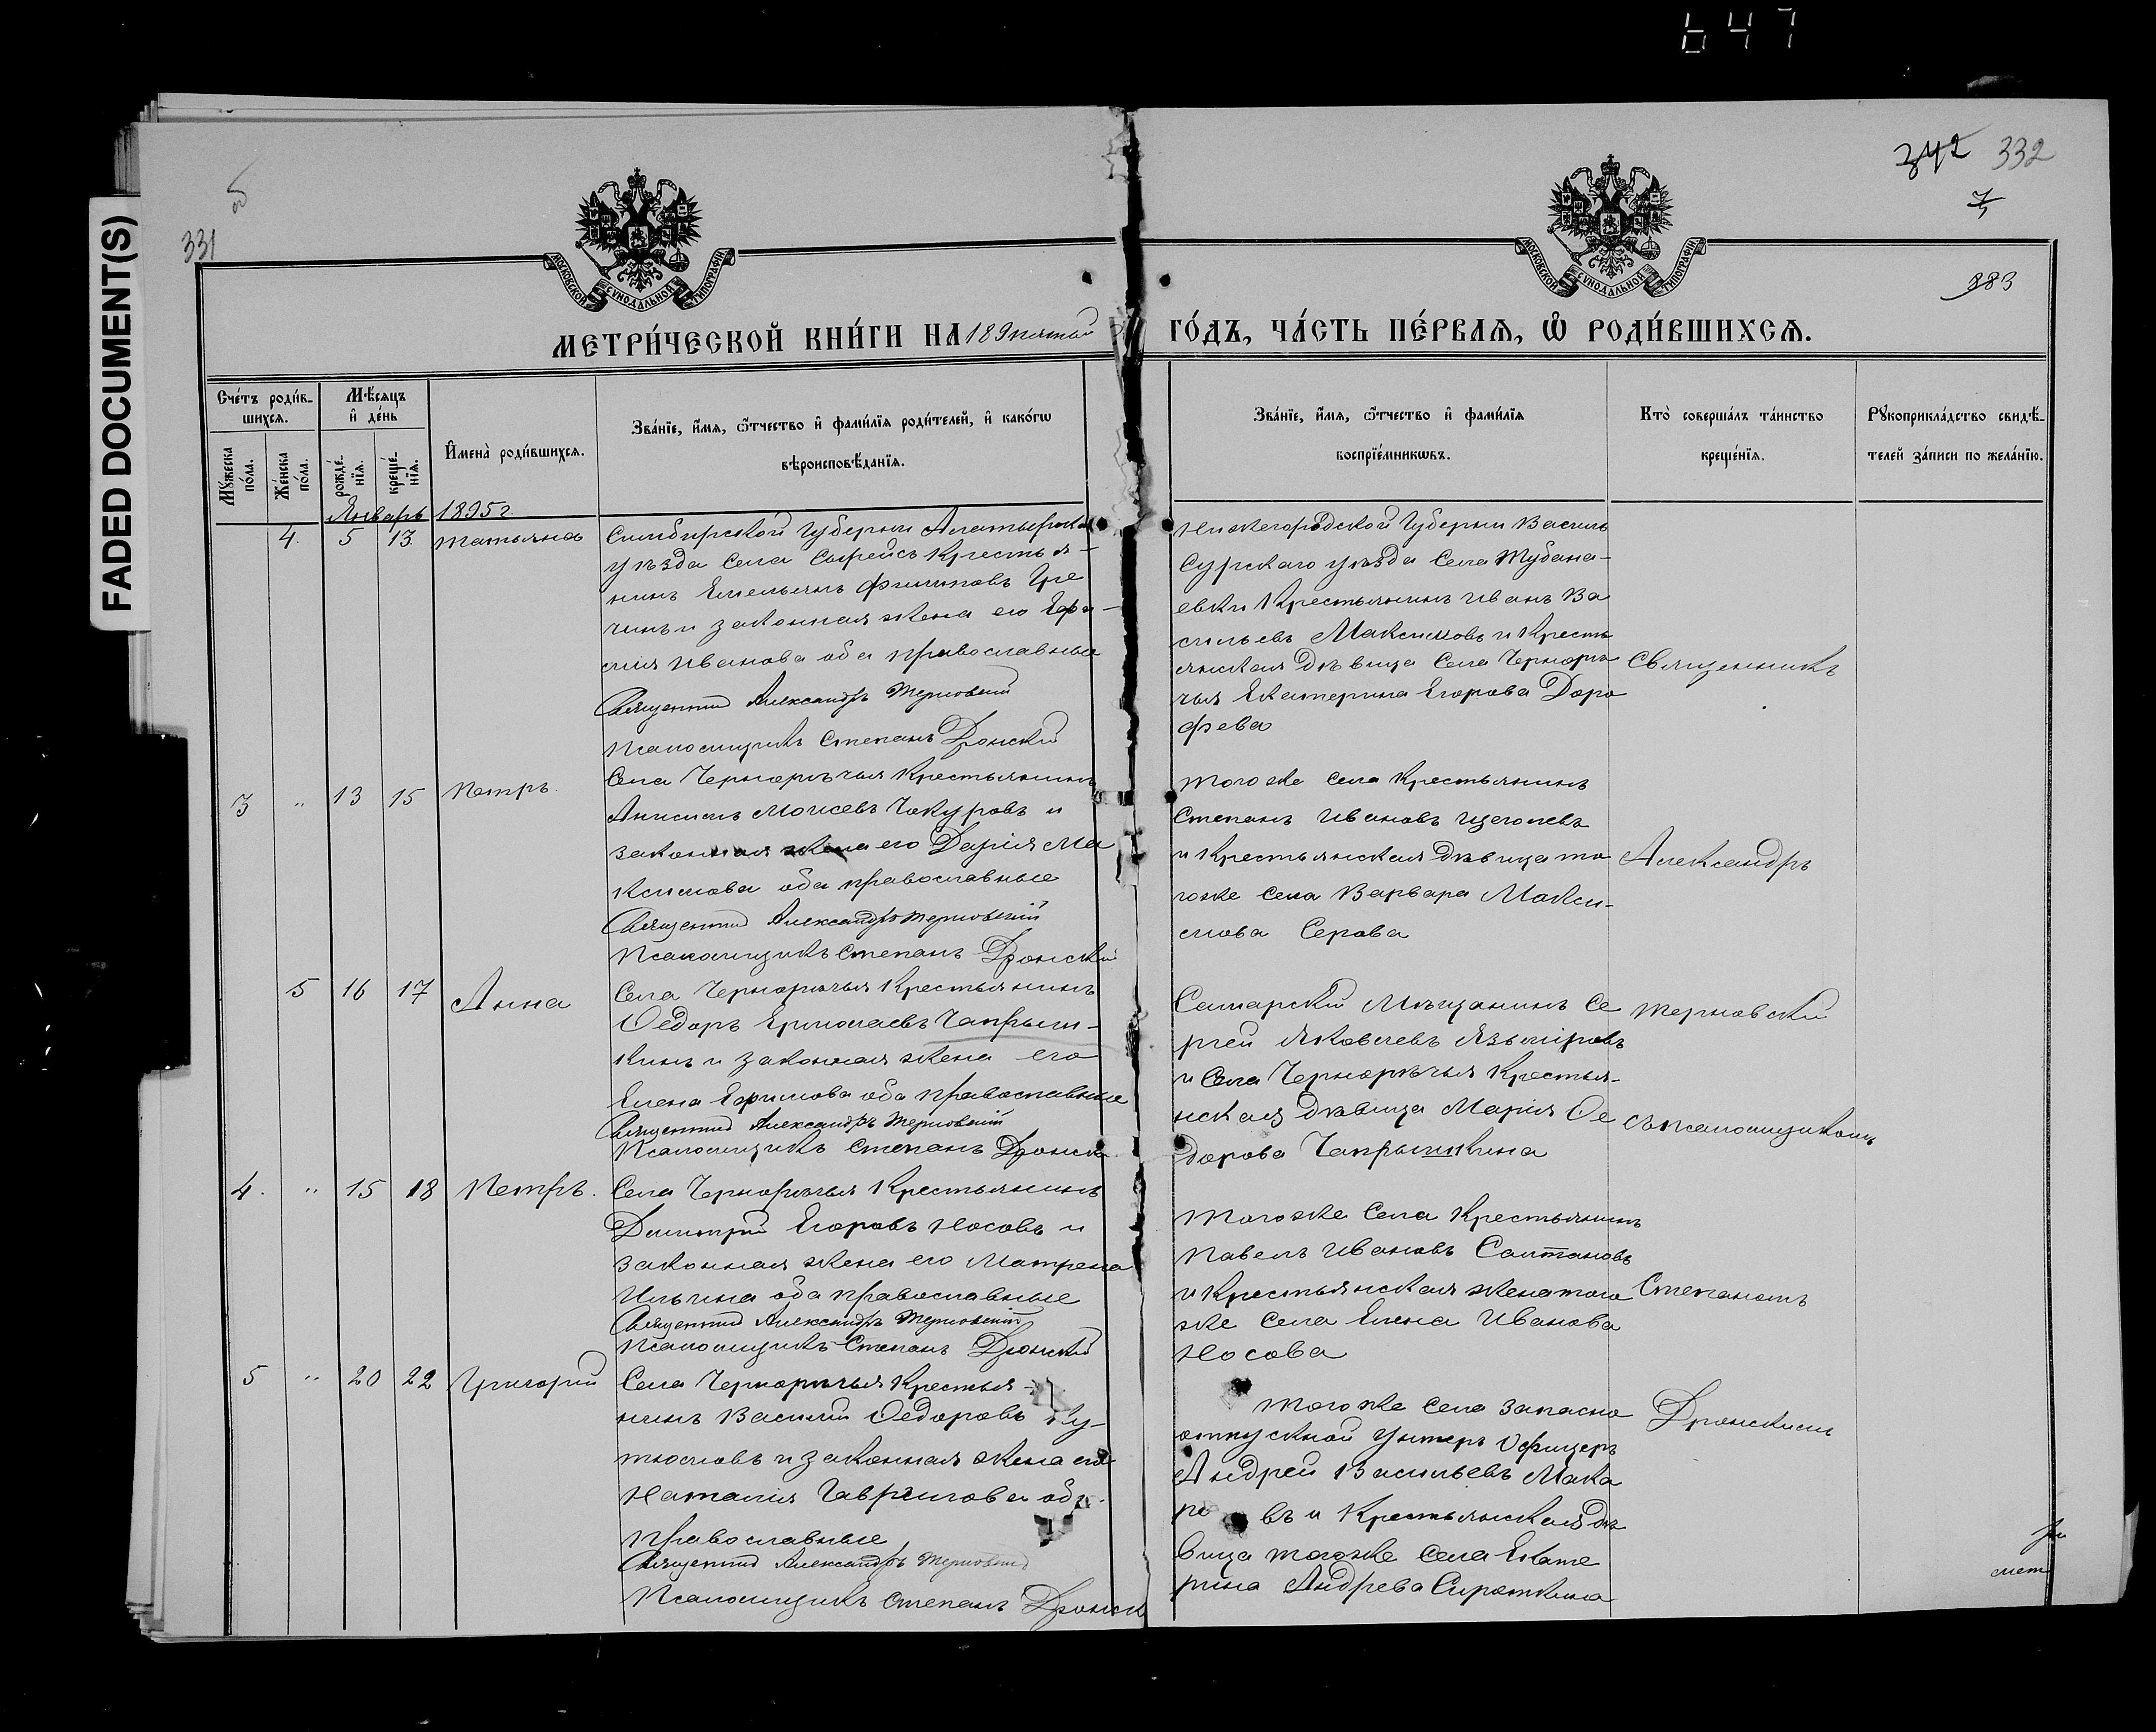 647
FADED DOCUMENT(S)
331
342 332
7
383
МОСКОВСКОЙ СѴНОДАЛЬНОЙ ТИПОГРАФІИ
МОСКОВСКОЙ СѴНОДАЛЬНОЙ ТИПОГРАФІИ
МЕТРИ́ЧЕСКОЙ КНИ́ГИ НА 189пятый ГО́ДЪ, ЧА́СТЬ ПЕ́РВАѦ, Ѽ РОДИ́ВШИХСѦ.
Сче́тъ роди́в-
шихсѧ.
Мѣ́сѧцъ
и҆ де́нь
Мꙋ́жеска
по́ла.
Же́нска
по́ла.
рожде́-
нїѧ.
креще́-
нїѧ.
И҆мена̀ роди́вшихсѧ.
Зва́нїе, и҆́мѧ, ѻ҆́тчество и҆ фами́лїѧ роди́телей, и҆ како́гѡ
вѣроисповѣ́данїѧ.
Зва́нїе, и҆́мѧ, ѻ҆́тчество и҆ фами́лїѧ
воспрїе́мникѡвъ.
Кто̀ соверша́лъ та́инство
креще́нїѧ.
Рꙋкоприкла́дство свидѣ́-
телей за́писи по жела́нїю.
Январь 1895 г
4. 5 13. Татьяна
Симбирской Губерніи Алатырска
уѣзда Села Сырейсъ Крестья-
нинъ Емельянъ Филиповъ Гре
чинъ и законная жена его Ефи-
мія Иванова оба православные
Священник Александръ Терновский
Псаломщикъ Степанъ Дронский
Нижегородской Губерніи Василь
Сурскаго уѣзда Села Тубана-
евки Крестьянинъ Иванъ Ва
сильевъ Максимовъ и Кресть
янская Дѣвица Села Чернорѣ
чья Екатерина Егорова Доро
фева
Священникъ
3 " 13 15 Петръ.
Села Чернорѣчья Крестьянинъ
Анисимъ Моисевъ Чекуровъ и
законная жена его Дарія Ма
ксимова оба православные
Священник Александръ Терновский
Псаломщикъ Степанъ Дронский
Тогоже села Крестьянинъ
Степанъ Ивановъ Щеголевъ
и Крестьянская дѣвица то
гоже села Варвара Макси-
мова Серова
Александръ
5 16 17 Анна
Села Чернорѣчья Крестьянинъ
Ѳедоръ Ермолаевъ Чапрыш-
кинъ и законная жена его
Елена Ефимова оба православные
Священник Александръ Терновский
Псаломщикъ Степанъ Дронск
Самарский Мѣщанинъ Се
ргей Яковлевъ
и Села Чернорѣчья Крестья-
нская дѣвица Марія Ѳе
дорова Чапрышкина
Терновский
съ псаломщикомъ
4. " 15 18 Петръ.
Села Чернорѣчья Крестьянинъ
Димитрій Егоровъ Носовъ и
законная жена его Матрена
Ильина оба православные
Священник Александръ Терновский
Псаломщикъ Степанъ Дронский
Тогоже Села Крестьянинъ
Павелъ Ивановъ Салтановъ
и Крестьянская жена того
же села Елена Иванова
Носова
Степаномъ
5 " 20 22 Григорій
Села Чернорѣчья Крестья-
нинъ Василій Ѳедоровъ Ку-
тюмовъ и законная жена его
Наталія Гаврилова оба
православные
Священник Александръ Терновский
Псаломщикъ Степанъ Дронск
Тогоже села запасно
отпускной унтеръ офицеръ
Андрей Васильевъ Мака
ровъ и Крестьянская дѣ
вица тогоже Села Екате
рина Андрева Сироткина
Дронскимъ